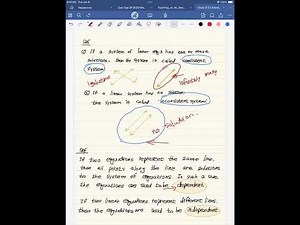 Def
① If a system of linear eqns has one or more
solutions, then the system is called consistent
system
1 solution
infinitely many
② If a linear system has no solution,
the system is called inconsistent system
no solution.
Def
If two equations represent the same line,
then all points along the line are solutions
to the system of equations. In such a case
the equations are said to be dependent.
If two linear equations represent different lines,
then the equations are said to be independent